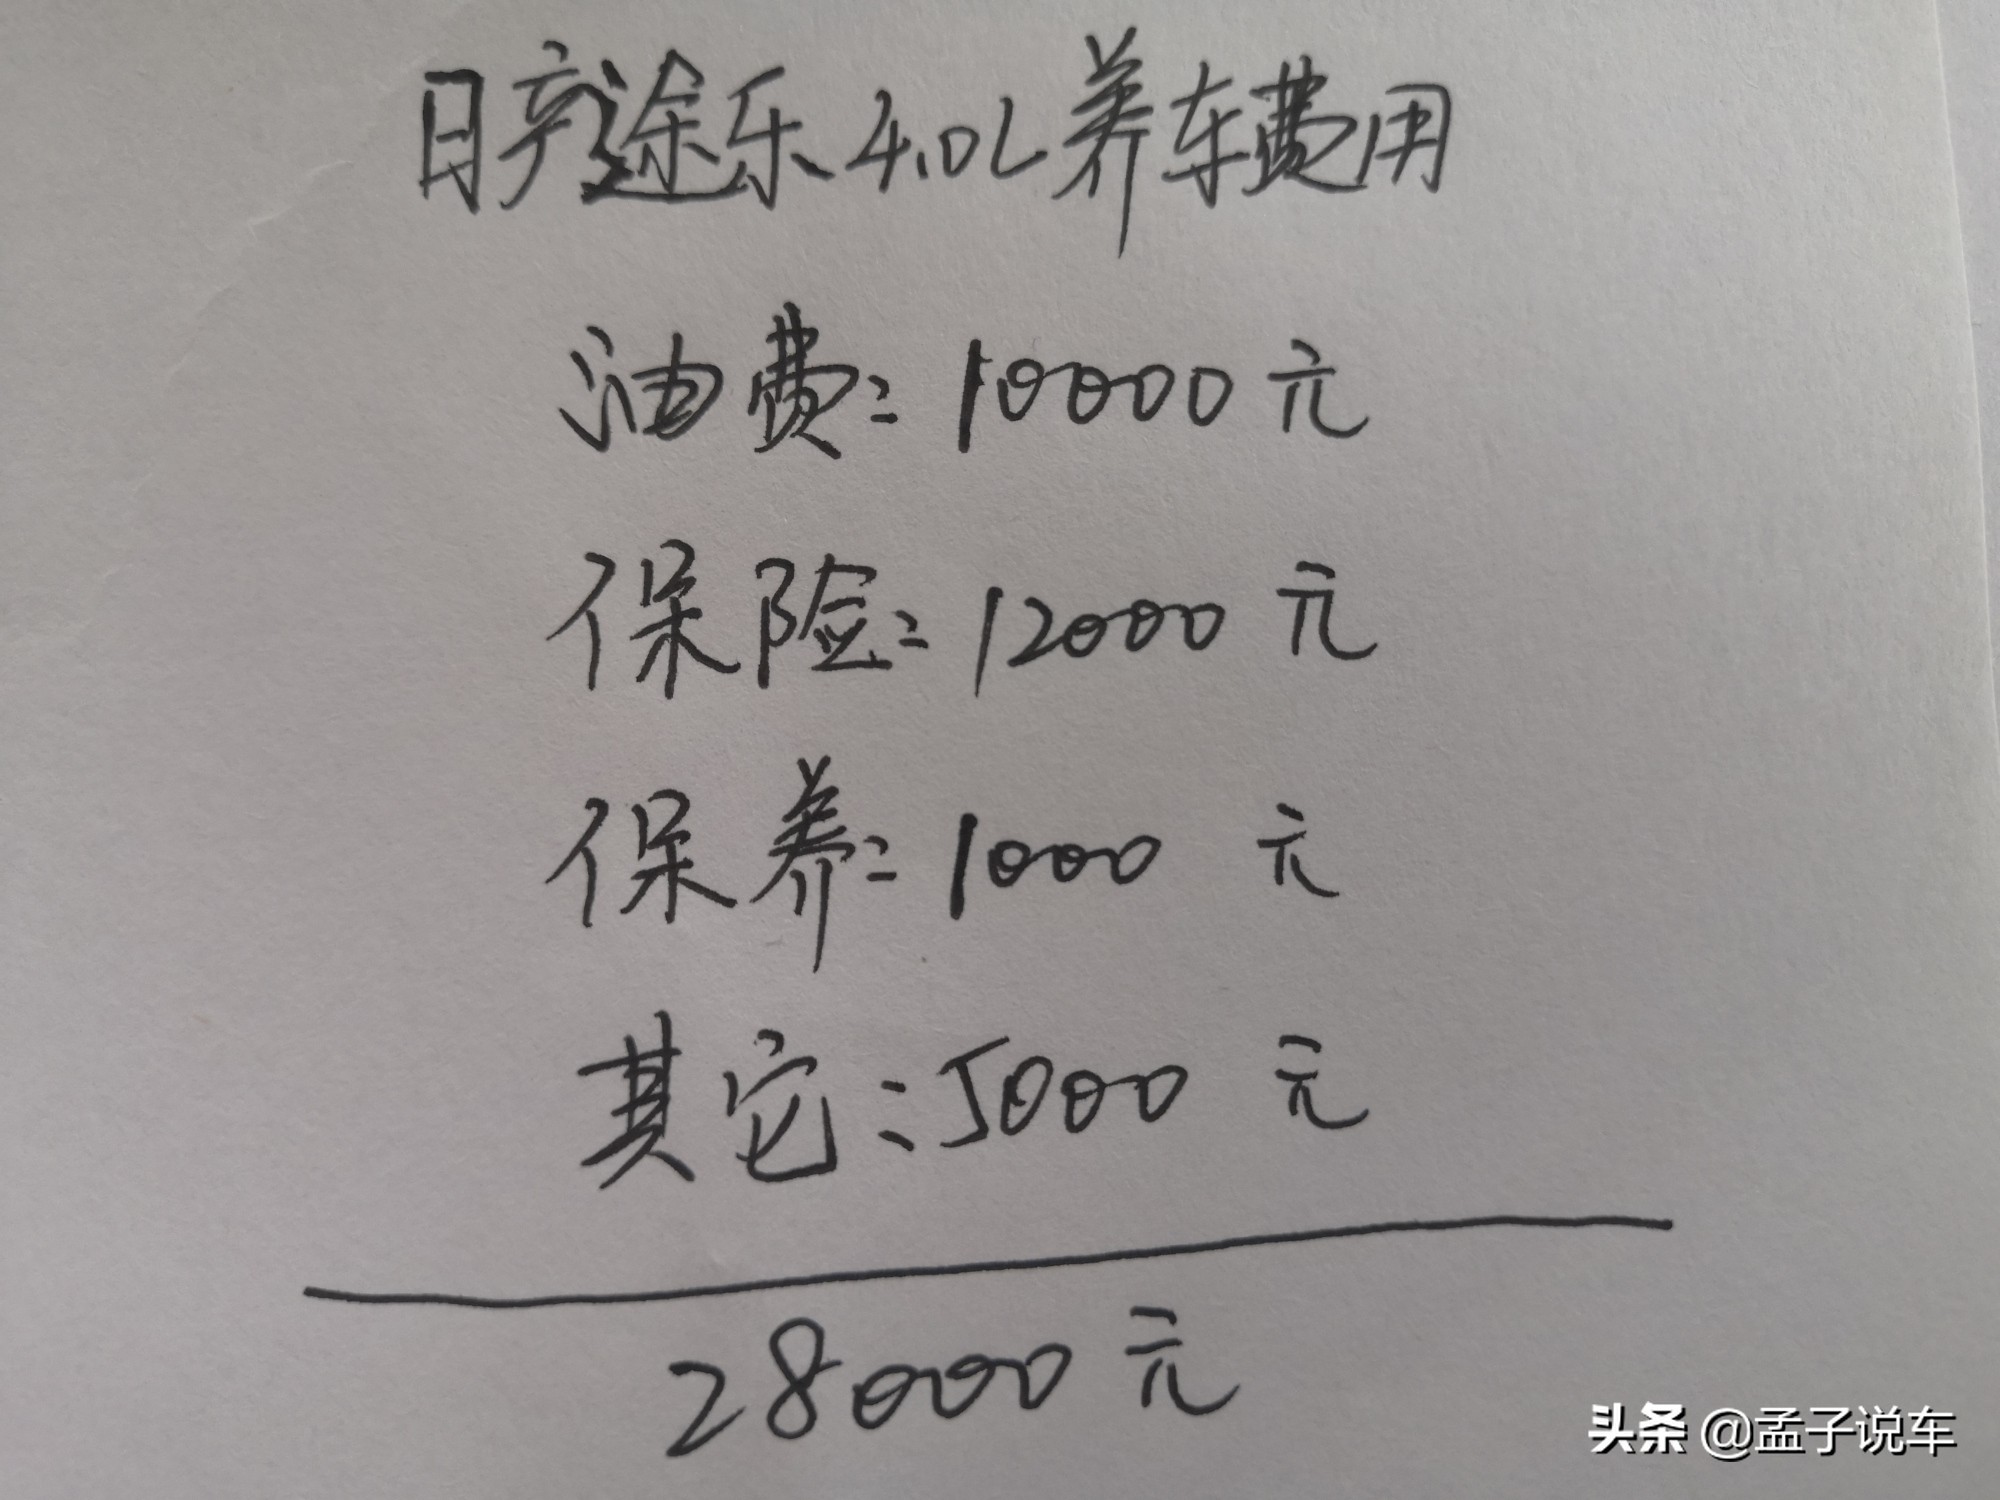 日产途乐4.0L养车费用
油费:10000元
保险:12000元
保养:1000元
其它:5000元
28000元
头条 @孟子说车